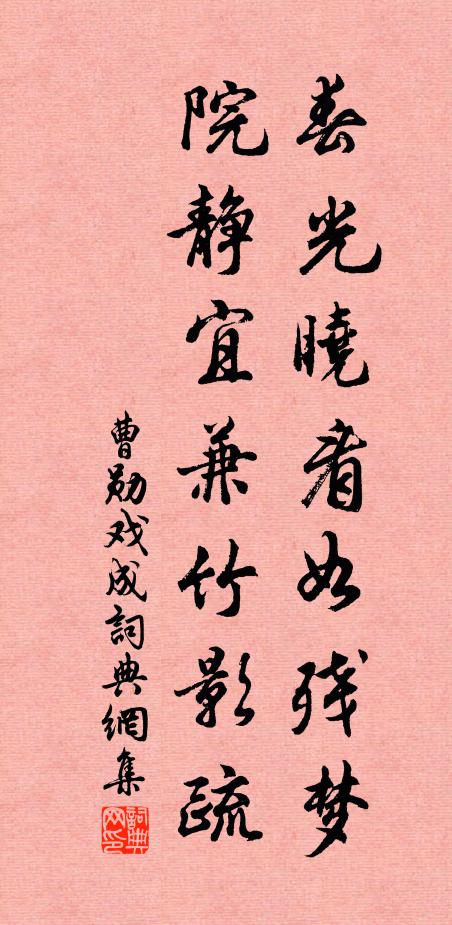 春光晓看如残梦
院静宜兼竹影疏
曹勋戏成詞典網集
詞典网印